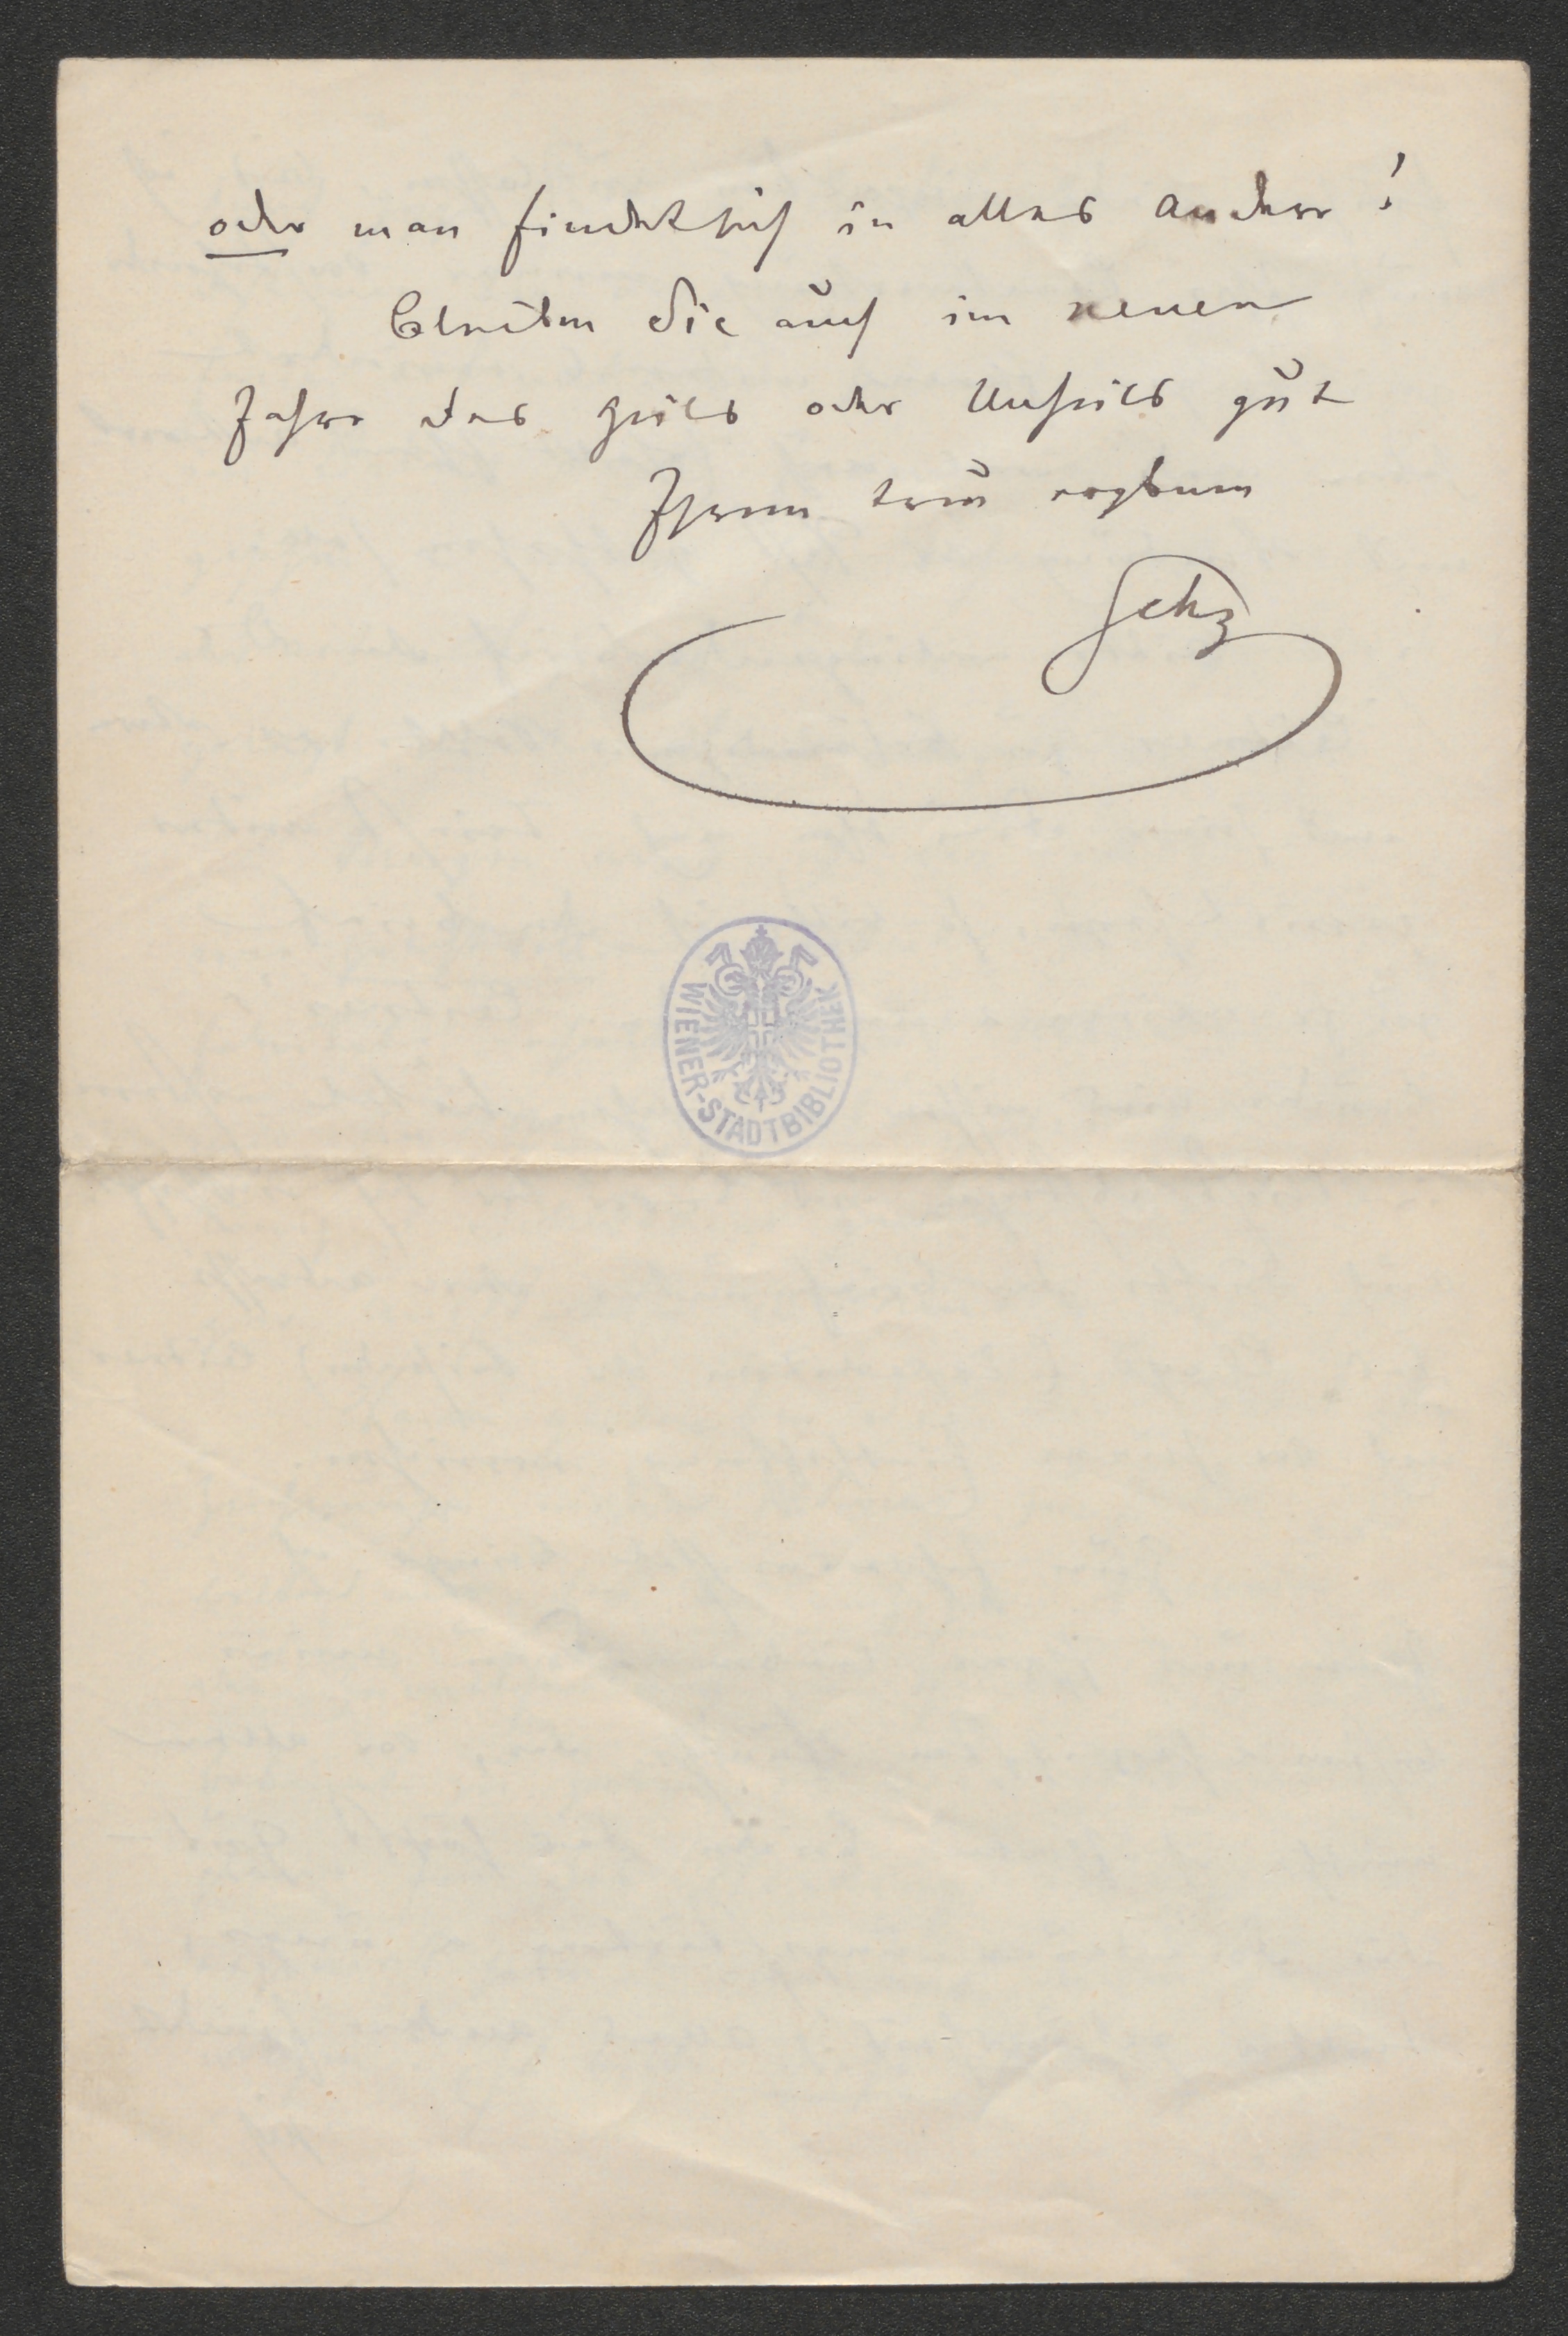 oder man findet sich in alles andere!
Bleiben Sie auch im neuen
Jahre des Heils oder Unheils gut
Ihrem treu ergebenen
WIENER-STADTBIBLIOTHEK